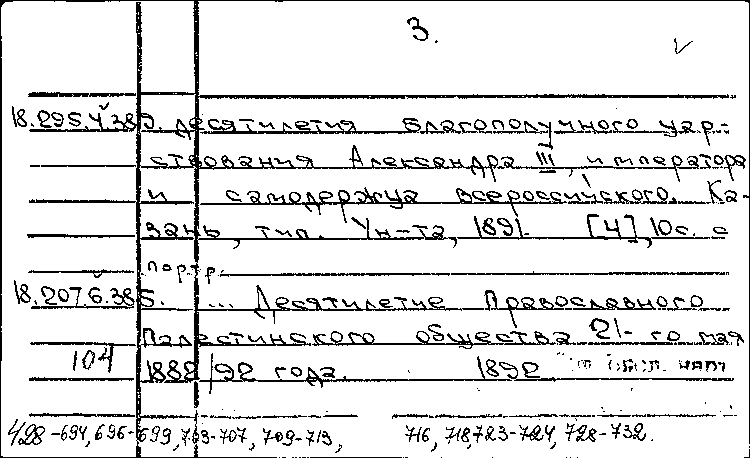 3.
18.295.4.385. десятилетия благополучного цар-
ствования Александра III, императора
и самодержца всероссийского. Ка-
зань, тип. Ун-та, 1891. [4], 10с. с
портр.
18.207.6.385. ... Десятилетие Православного
Палестинского общества 21-го мая
104 1882/92 года. 1892
428-694, 696-699, 703-707, 709-713, 716, 718, 723-724, 728-732.